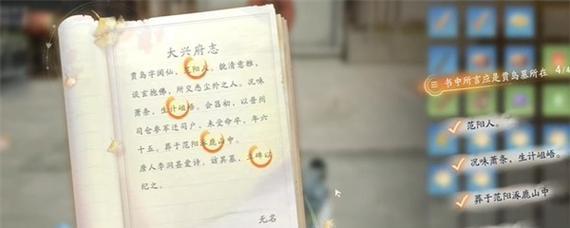 大兴府志
贾岛字阆仙，范阳人。貌清意雅，
谈玄抱佛，所交悉尘外之人。况味
萧条，生计岨峿。会昌初，以普州
司仓参军迁司户，未受命卒，年六
十五。葬于范阳涿鹿山中。
唐人李洞甚爱诗，访其墓，立碑以
纪之。
无名
书中所言应是贾岛墓所在 4/4
范阳人。
况味萧条，生计岨峿。
葬于范阳涿鹿山中